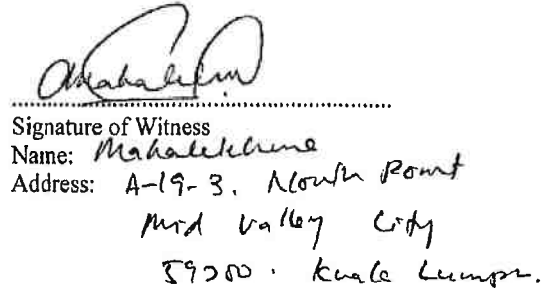 Signature of Witness
Name:
Address: A-19-3. North Point
Mid Valley City
59200. Kuala Lumpur.